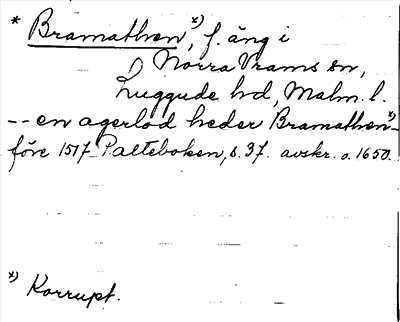 * Bramathen *), f. äng i
Norra Vrams sn,
Luggude hd, Malm. l.
-- en agerlod heder Bramathen *) -
före 1517 Palteboken, s. 37. avskr. o. 1650.
*) Korrupt.